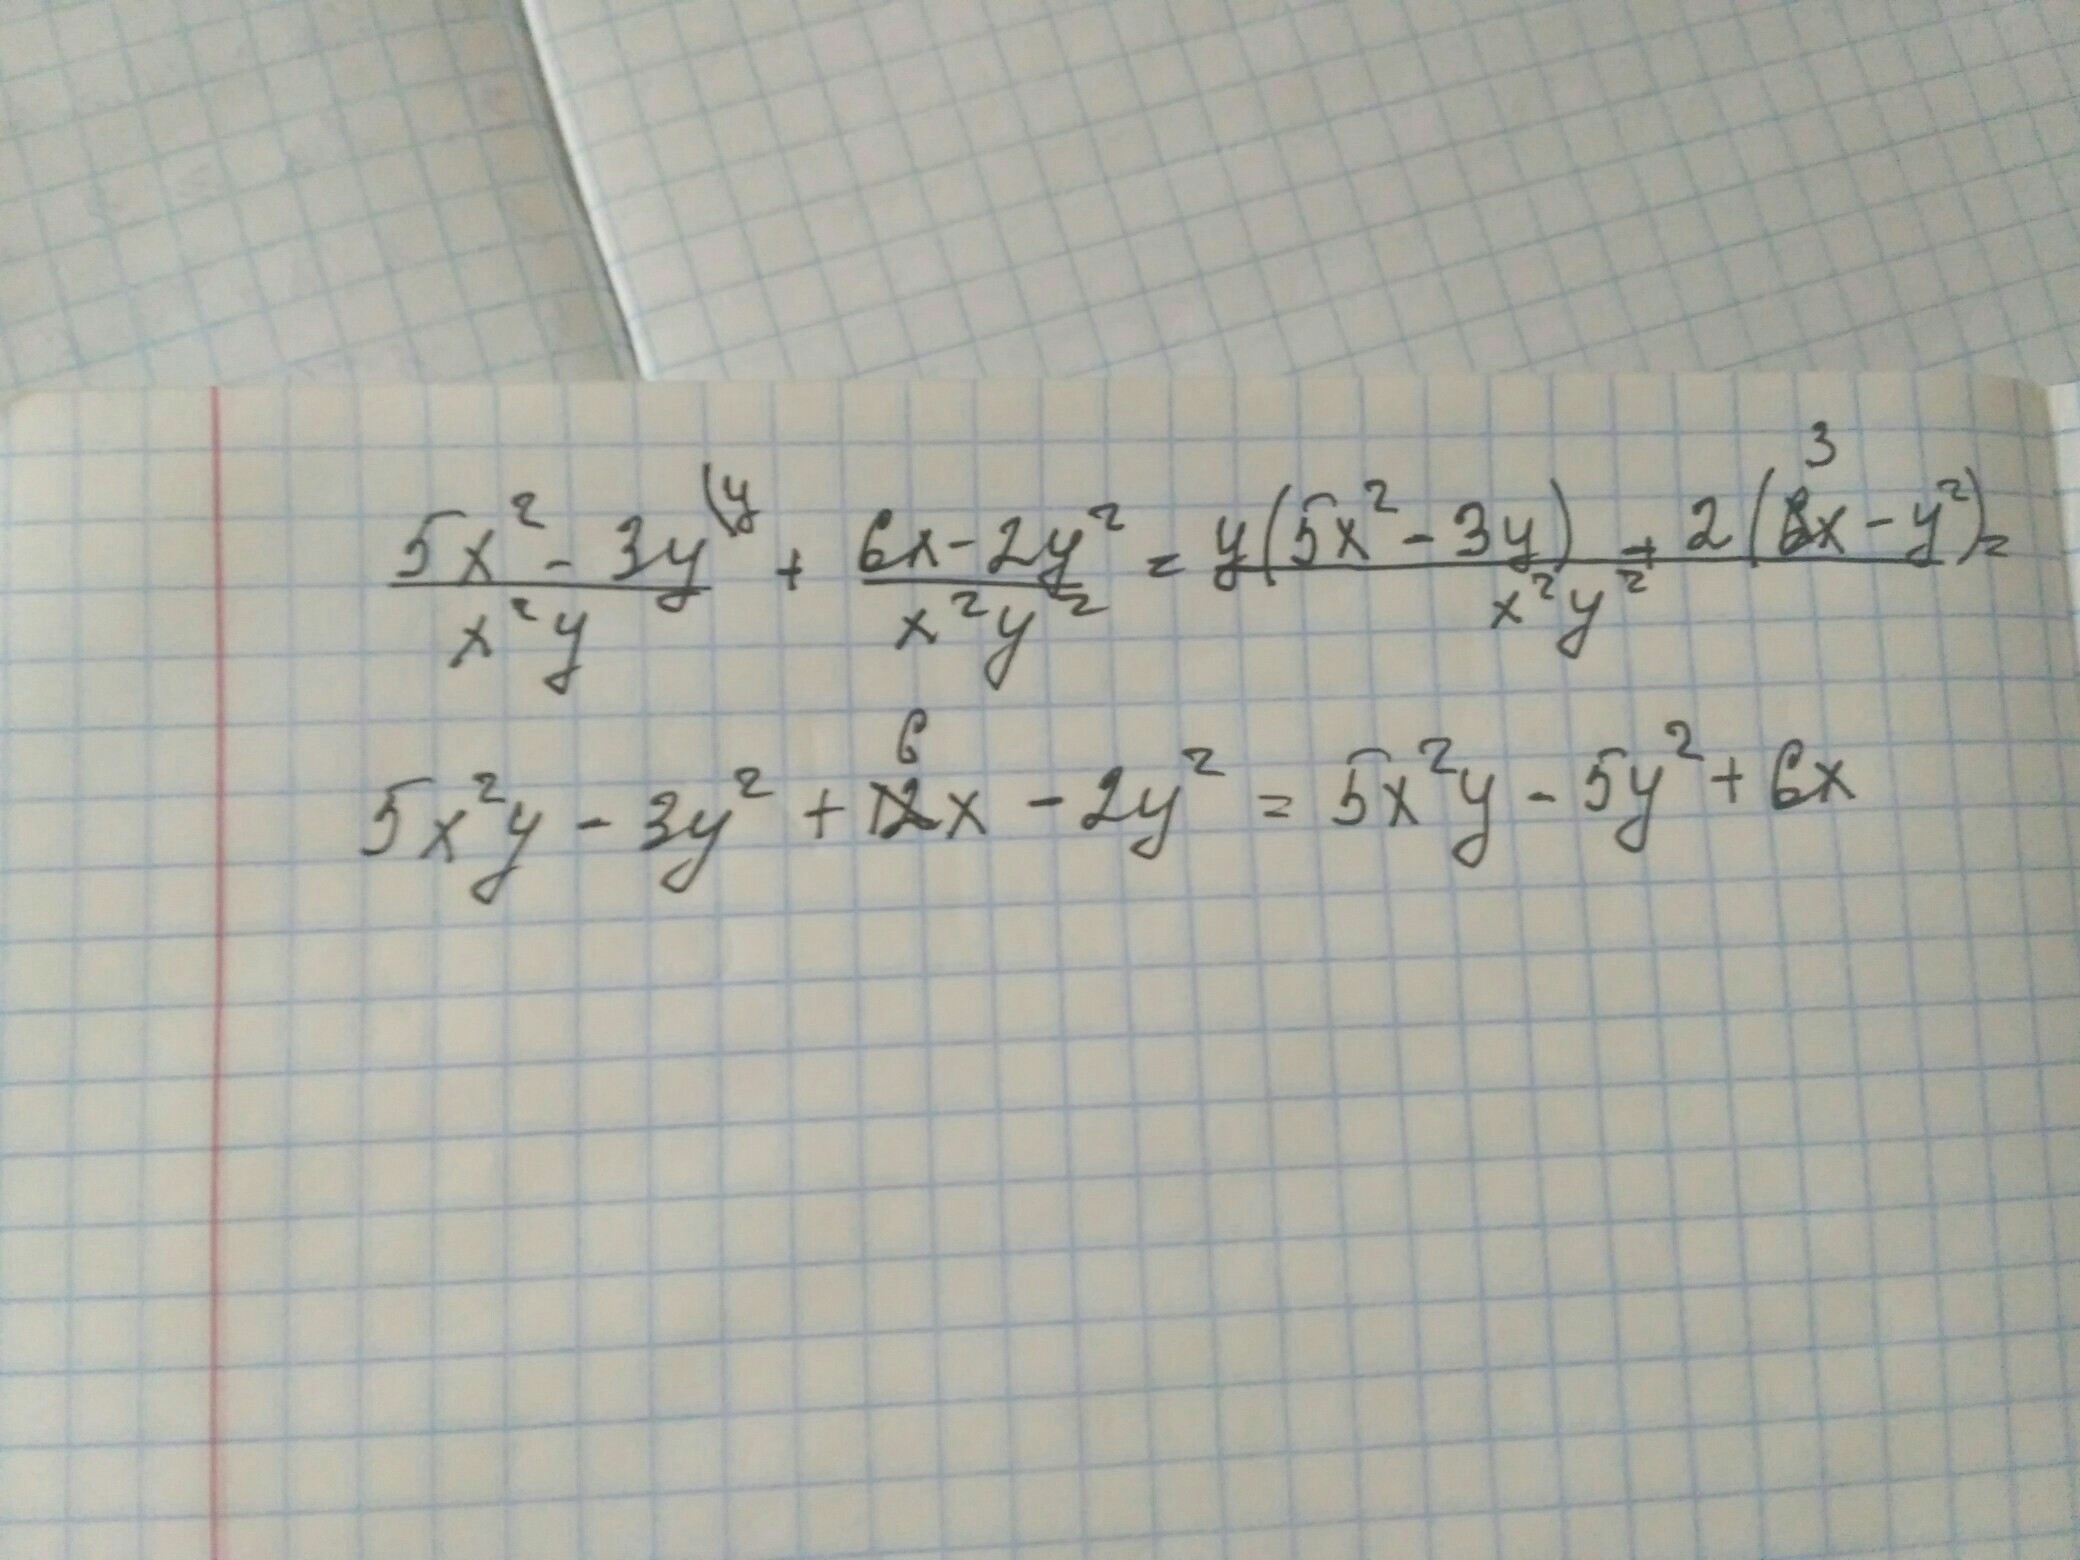 (5x² - 3y)/(x²y) (y + (6x - 2y²)/(x²y²) = (y(5x² - 3y) + 2(3x - y²))/(x²y²) =
5x²y - 3y² + 6x - 2y² = 5x²y - 5y² + 6x